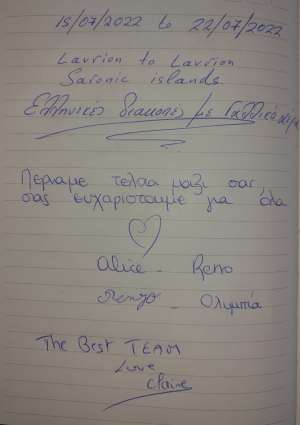 15/07/2022 to 22/07/2022
Lavrion to Lavrion
Saronic islands.
Ελληνικές διακοπές με Γαλλικό
Περάσαμε τέλεια μαζί σας
σας ευχαριστούμε για όλα
Alice - Reno
- Ολυμπία
The Best TEAM
Love
Claire